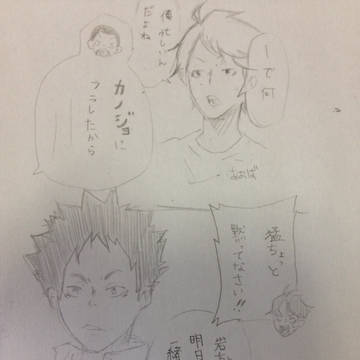 ーで何
俺忙しいん
だよね
カノジョに
フラレたから
あおば
猛ちょっと
黙ってなさい!!
岩ち
明日
一緒